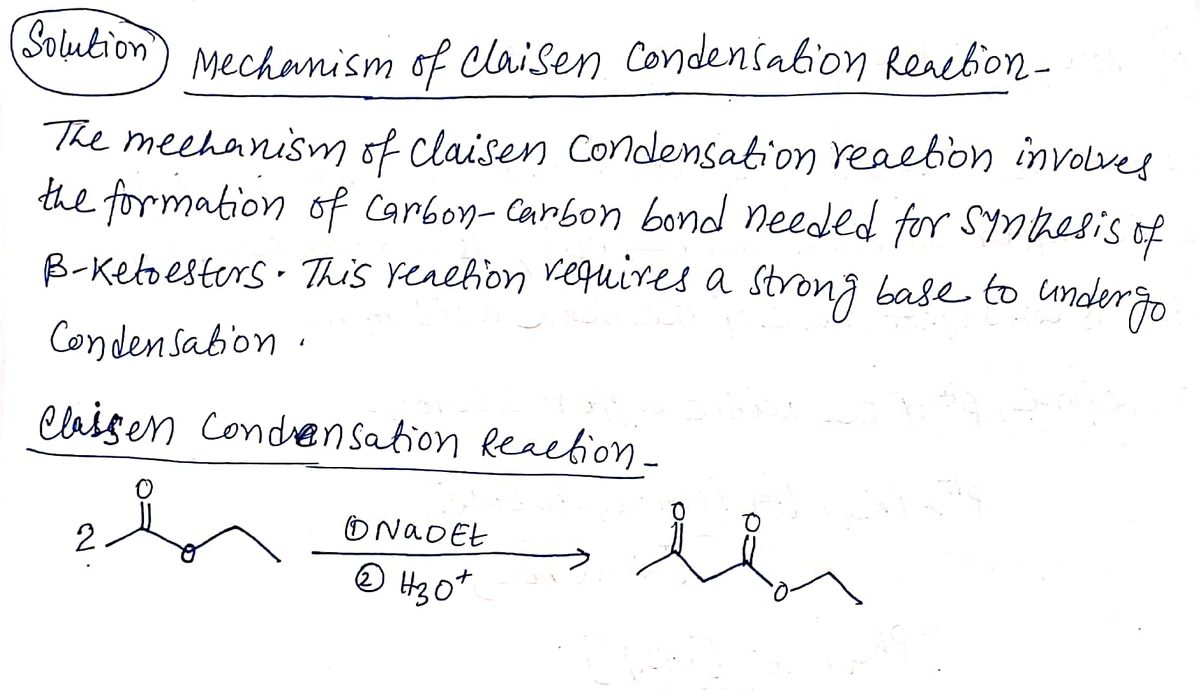 Solution
Mechanism of Claisen Condensation Reaction-
The mechanism of Claisen Condensation reaction involves
the formation of Carbon-Carbon bond needed for Synthesis of
β-Ketoesters. This reaction requires a strong base to undergo
Condensation.
Claisen Condensation Reaction-
O
2
O
① NaOEt
② H3O+
O O
O